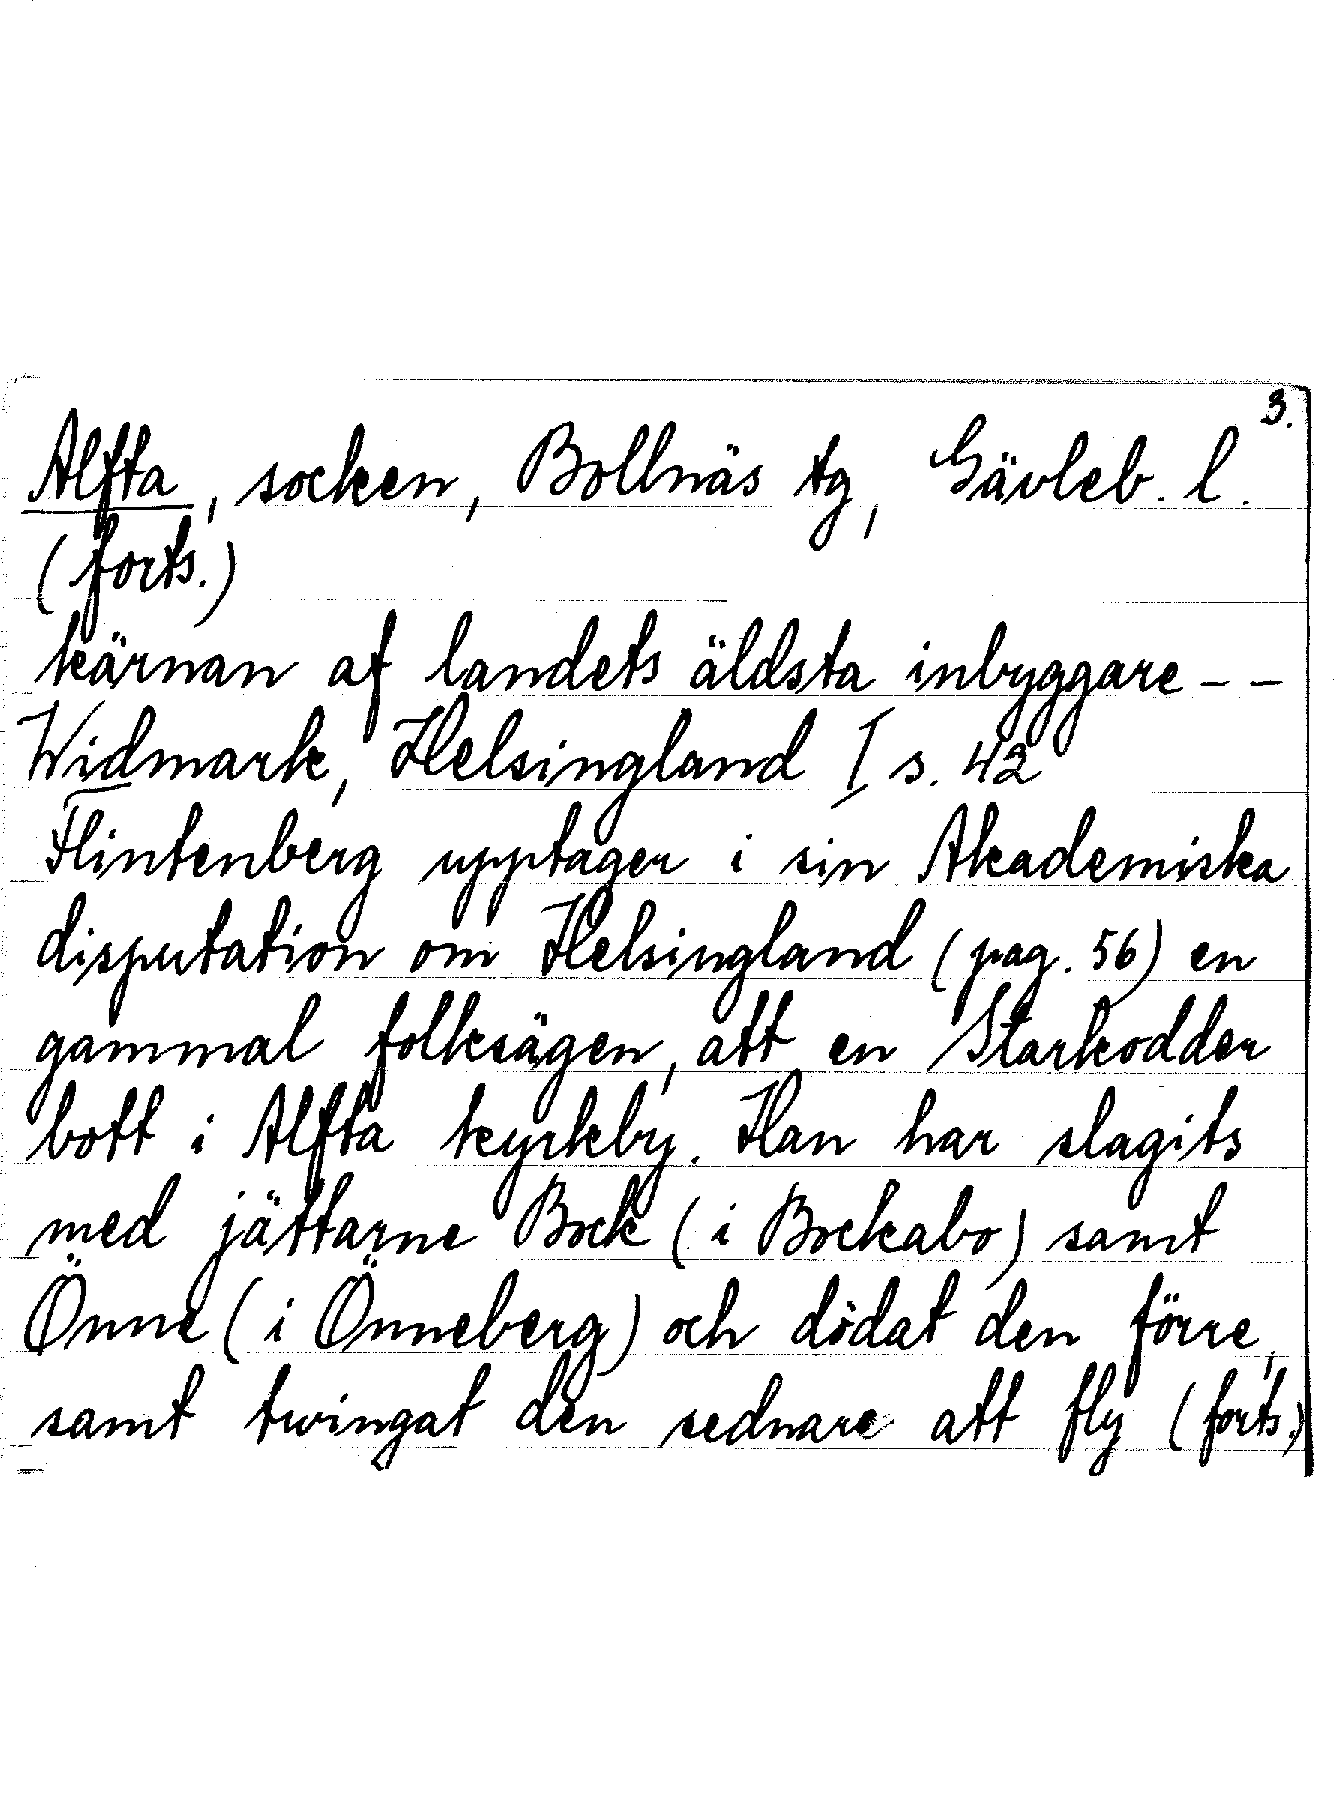 3.
Alfta, socken, Bollnäs tg, Gävleb. l.
(forts.)
kärnan af landets äldsta inbyggare - -
Widmark, Helsingland I s. 42
Flintenberg upptager i sin Akademiska
disputation om Helsingland (pag. 56) en
gammal folksägen, att en Starkodder
bott i Alfta kyrkby. Han har slagits
med jättarne Bock (i Bockabo) samt
Önne (i Önneberg) och dödat den förre,
samt twingat den sednare att fly (forts.)